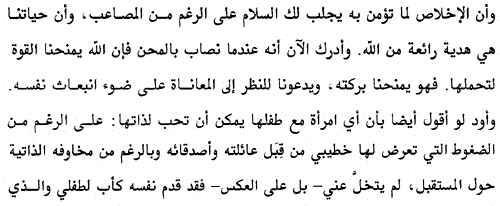 وأن الإخلاص لما تؤمن به يجلب لك السلام على الرغم من المصاعب، وأن حياتنا
هي هدية رائعة من الله. وأدرك الآن أنه عندما نصاب بالمحن فإن الله يمنحنا القوة
لتحملها. فهو يمنحنا بركته، ويدعونا للنظر إلى المعاناة على ضوء انبعاث نفسه.
وأود لو أقول أيضا بأن أي امرأة مع طفلها يمكن أن تحب لذاتها: على الرغم من
الضغوط التي تعرض لها خطيبي من قِبَل عائلته وأصدقائه وبالرغم من مخاوفه الذاتية
حول المستقبل، لم يتخلَّ عني- بل على العكس- فقد قدم نفسه كأب لطفلي والذي